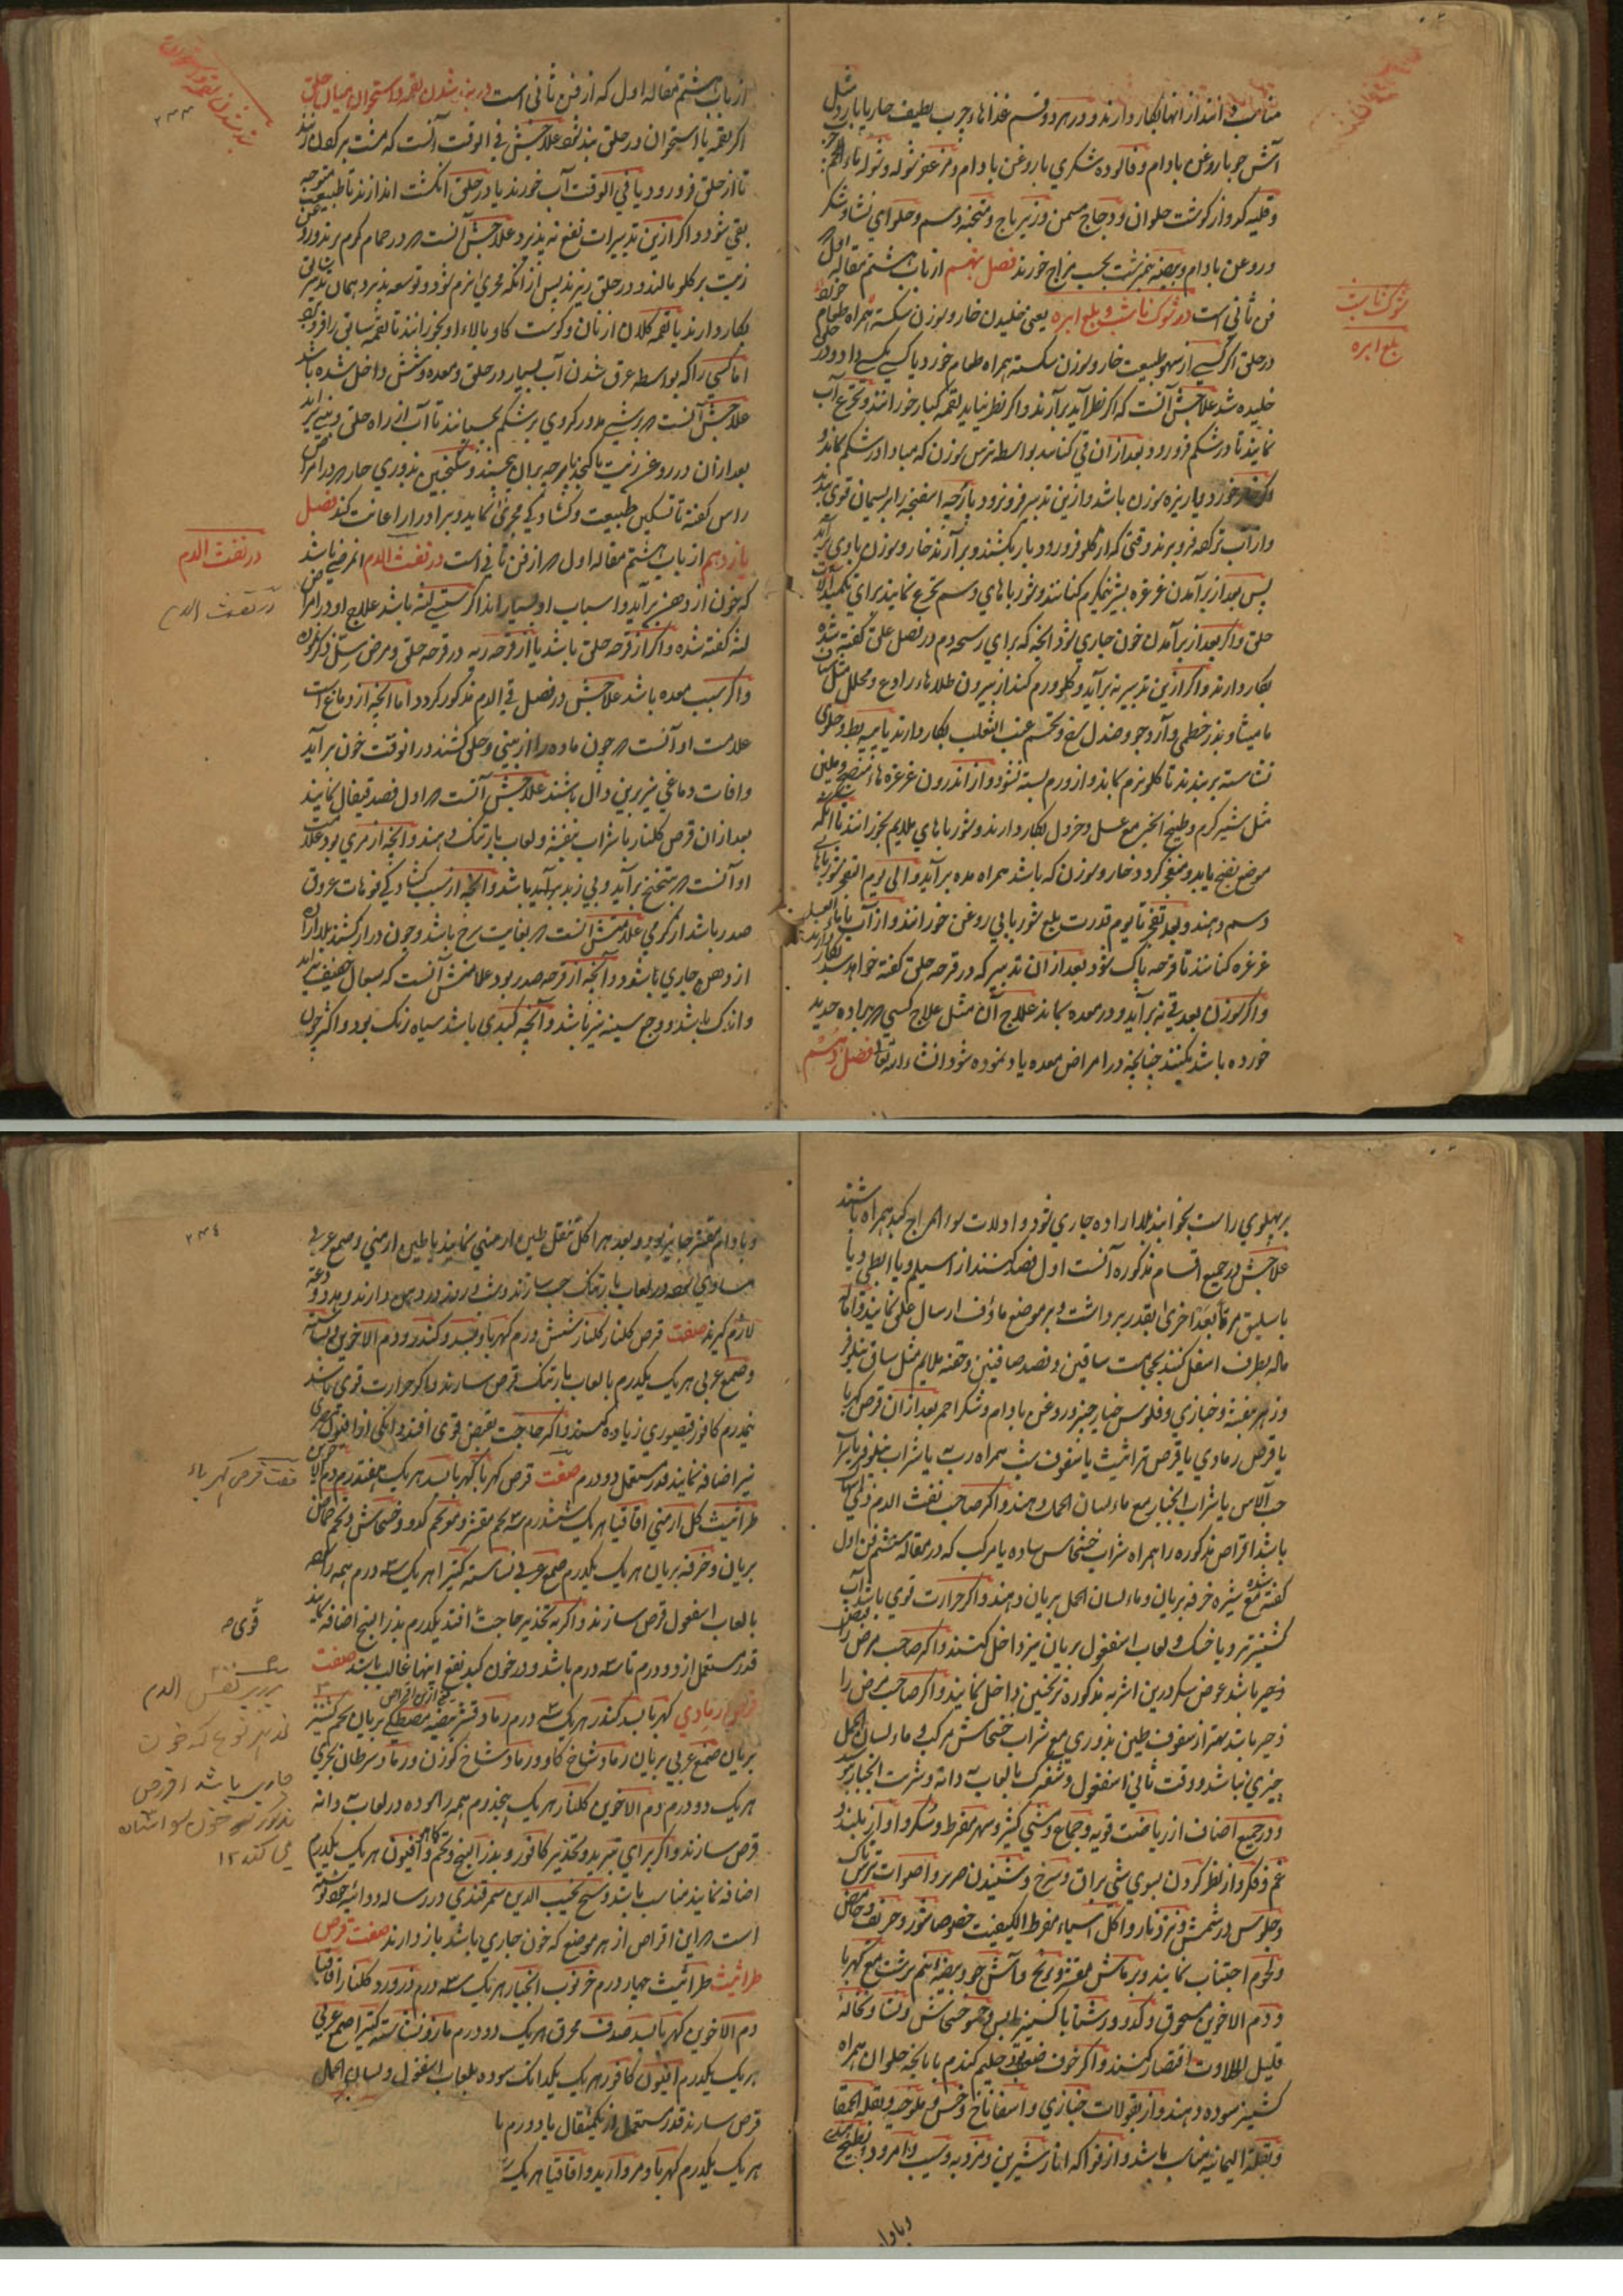 مناسب دانند از انها بکار دارند و در هر دو قسم غذاهاء چرب لطیف حار یا بارد مثل
آش جو با روغن بادام و فالوده شکری با روغن بادام و
و قلیه کدو از کوشت حلوان و دجاج مسمن و زیرباج و حلوای نشا و شکر
و روغن بادام و بیضه نیمبرشت بحسب مزاج خورند فصل نهم از باب هشتم مقاله اول
فن ثانی است در شوک ناشب و بلع ابره یعنی خلیدن خار و سوزن شکسته همراه طعام
در حلق اگر کسی از سهو طبیعت خار و سوزن شکسته همراه طعام خورد یا کسی بکسی داد و در حلق
خلیده شد علاجش آنست که اگر نظر آید برآرند و اگر نظر نیاید لقمه کبار خورانند و تجرع آب
نمایند تا در شکم فرو رود بعد از ان قی کنانند بواسطه ترس سوزن که مبادا در شکم بماند و
خورد یا ریزه سوزن باشد و ازین تدبیر فرو نرود پارچه اسفنجه را بریسمان قوی بندند
و از آب تر کرده فرو برند وقتی که از گلو فرو رود باز بکشند و برآرند خار و سوزن با وی برآید
پس بعد از برآمدن غرغره بشیر نیمگرم کنانند و شورباهای دسم تجرع نمایند برای
حلق و اگر بعد از برآمدن خون جاری شود آنچه که برای رسیدن دم در فصل علق گفته شده
بکار دارند و اگر ازین تدبیر نه برآید و گلو ورم کند از بیرون طلاهاء رادع و محلل مثل
مامیثا و بذر خطمی و آرد جو و صندل سرخ و تخم عنب الثعلب بکار دارند یا پیه بط و حلوای
نشاسته بر بندند تا گلو نرم بماند و از ورم بسته نشود و از اندرون غرغره هاء منضج و ملین
مثل شیر گرم و طبیخ انجیر مع عسل و خردل بکار دارند و شورباهای ملایم بخورانند تا آنکه
موضع نضج یابد و منفجر گردد و خار و سوزن که باشد همراه مده برآید و الی یوم النضج شورباهای
دسم دهند و بعد نضج تا یوم قدرت بلع شوربای بی روغن خورانند و از آب با ماء العسل
غرغره کنانند تا قرحه پاک شود بعد از ان تدبیر که در قرحه حلق گفته خواهد شد بکار دارند
و اگر سوزن بعد قی نه برآید و در معده بماند علاج آن مثل علاج کسی که براده حدید
خورده باشد بکنند چنانچه در امراض معده یاد نموده شود انشاء الله تعالی فصل دهم
شوک ناشب
بلع ابره
از باب هشتم مقاله اول که از فن ثانی است در بند شدن لقمه و استخوان میان حلق
اگر لقمه یا استخوان در حلق بند شود علاجش فی الوقت آنست که مشت بر کول زنند
تا از حلق فرو رود یا فی الوقت آب خورند یا در حلق انگشت اندازند تا طبیعت متوجه
بقی شود و اگر ازین تدبیرات نفع نه پذیرد علاجش آنست که در حمام گرم برند و روغن
زیت بر گلو مالند و در حلق ریزند پس از انکه مجری نرم شود و توسعه پذیرد همان تدبیر سابق
بکار دارند یا لقمه کلان از نان و گوشت گاو بالاء او بخورانند تا لقمه سابق را فرو برد
اما کسی را که بواسطه غرق شدن آب بسیار در حلق و معده و شش داخل شده باشد
علاجش آنست که بر شکم بچسپانند تا آب از راه حلق و بینی برآید
بعد از ان در روغن زیت پارچه بران بچسپند و سکنجبین بذوری حار که در امراض
راس گفته تا تسکین طبیعت و گشادگی مجری نماید و بر ادرار اعانت کند فصل
یازدهم از باب هشتم مقاله اول که از فن ثانی است در نفث الدم آن مرضی باشد
که خون از دهن برآید و اسباب او بسیار اند اگر سبب لثه باشد علاج او در امراض
لثه گفته شده و اگر از قرحه حلق باشد یا از قرحه ریه در قرحه حلق و مرض سل مذکور
و اگر سبب معده باشد علاجش در فصل قی الدم مذکور گردد اما آنچه از دماغ است
علامت او آنست که چون ماده را از بینی و حلق کشند در انوقت خون برآید
و افات دماغی نیز برین دال باشند علاجش آنست که اول فصد قیفال نمایند
بعد از ان قرص کلنار با شراب بنفشه و لعاب بارتنگ دهند و آنچه از مری بود علامت
او آنست که بتنحنح برآید و بی زبد برآید باشد و آنچه از سبب گشادگی فوهات عروق
صدر باشد از گرمی علامتش آنست که بغایت سرخ باشد و چون دراز کشند بلا اراده
از دهن جاری باشود و آنچه از قرحه صدر بود علامتش آنست که بسعال خفیف برآید
و اندک باشد و وجع سینه نیز باشد و آنچه کبدی باشد سیاه رنگ بود و اکثر چون
در نفث الدم
در نفث الدم
۲۳۳
بر پهلوی راست بخوابند بلا اراده جاری شود و اولات سوء المزاج کبد همراه باشند
علاجش در جمیع اقسام مذکوره آنست اول فصد کنند از اسیلم و یا ابطی و یا
باسلیق مرة بعد اخری بقدر برداشت و بر موضع ماؤف ارسال علق نمایند و اماله
ماله بطرف اسفل کنند بحجامت ساقین و فصد صافنین و حقنه ملایم مثل ساق نیلوفر
و زهر بنفشه و خبازی و فلوس خیارچنبر و روغن بادام و شکر احمر بعد از ان قرص کهربا
یا قرص رمادی یا قرص طراثیث یا سفوف شب همراه رب به یا شراب نیلوفر یا شراب
حب الآس یا شراب انجبار مع ماء لسان الحمل دهند و اگر صاحب نفث الدم ذی اسهال
باشد اقراص مذکوره را همراه شراب خشخاش ساده یا مرکب که در مقاله ششم فن اول
گفته شده مع شیره خرفه بریان و ماء لسان الحمل بریان دهند و اگر حرارت قوی باشد آب
کشنیز تر و یا خشک و لعاب اسفغول بریان نیز داخل کنند و اگر صاحب مرض را قبض
و زحیر باشد عوض سکر درین اشربه مذکوره ترنجبین داخل نمایند و اگر صاحب مرض را
زحیر باشد بهتر از سفوف طین بذوری مع شراب خشخاش مرکب و ماء لسان الحمل
چیزی نباشد و وقت ثانی اسفغول و شکر بالعاب به دانه و شربت انجبار
و در جمیع اصناف از ریاضت قویه و جماع و مشی کثیر و سهر مفرط و سکر و آواز بلند و
غم و فکر و از نظر کردن بسوی شی براق و سرخ و شنیدن صریر و اصوات ترسناک
و جلوس در شمس و نزد نار و اکل اشیاء مفرط الکیفیت خصوصا شور و حریف و حامض
و لحوم اجتناب نمایند و بر ماش مقشر و برنج و آش جو و بیضه نیم برشت مع کهربا
و دم الاخوین مسحوق و کدو و رشتا با کشنیز یابس و حسو خشخاش و نشا و نخاله
قلیل الحلاوت اقتصار کنند و اگر خوف ضعف بود حلیم گندم با پایچه حلوان همراه
کشنیز سوده دهند و از بقولات خبازی و اسفاناخ و خس و ملوخیه و بقله الحمقا
و بقلة الیمانیه مناسب باشد و از فواکه انار شیرین و مز و به و سیب و امرود و بطیخ هندی
و بادام
و بادام مقشر جایز بود و بعد هر اکل تنقل طین ارمنی نمایند یا طین ارمنی و صمغ عربی
مساوی در لعاب بارتنگ حب سازند و شب و روز در دهن دارند و
لازم گیرند صفت قرص کلنار کلنار شش درم کهربا و بسد و کندر و دم الاخوین
و صمغ عربی هر یک یکدرم بالعاب بارتنگ قرص سازند و اگر حرارت قوی باشد
نیمدرم کافور قیصوری زیاده کنند و اگر حاجت بقبض قوی افتد دانگی از افیون
نیز اضافه نمایند قدر مستعمل دو درم صفت قرص کهربا کهربا بسد هر یک هفتدرم دم الاخوین
طراثیث گل ارمنی اقاقیا هر یک ششدرم تخم کدو و خشخاش و تخم حماض
بریان و خرفه بریان هر یک یکدرم صمغ عربی نشاسته کتیرا هر یک سه درم همه را
بالعاب اسفغول قرص سازند و اگر به تخدیر حاجت افتد یکدرم بذر البنج اضافه نمایند
قدر مستعمل از دو درم تا سه درم باشد و در خون کبد نفع اینها غالب باشد صفت
قرص رمادی کهربا بسد کندر هر یک سه درم رماد قشر بیضه مصطکی بریان تخم کشنیز
بریان صمغ عربی بریان رماد شاخ گاو و رماد شاخ گوزن و رماد سرطان بحری
هر یک دو درم دم الاخوین کلنار هر یک پنجدرم همه را سوده در لعاب به دانه
قرص سازند و اگر برای تبرید و تخدیر کافور و بذر البنج و تخم کاهو و افیون هر یک یکدرم
اضافه نمایند مناسب باشد و شیخ نجیب الدین سمرقندی در رساله دوائیه خود نوشته
است که این اقراص از هر موضع که خون جاری باشد باز دارند صفت قرص
طراثیث طراثیث چهار درم خرنوب انجبار هر یک سه درم زر ورد کلنار اقاقیا
دم الاخوین کهربا بسد صدف محرق هر یک دو درم مازو نشاسته کتیرا صمغ عربی
هر یک یکدرم افیون کافور هر یک یکدانگ سوده بلعاب اسفغول و لسان الحمل
قرص سازند قدر مستعمل از یکمثقال یا دو درم با
هر یک یکدرم کهربا و مروارید و اقاقیا هر یک
۲۳۴
صفت قرص کهرباء
قوی
الدم
که خون
جاری باشد اقرص
مذکور خون
می کند ۱۲